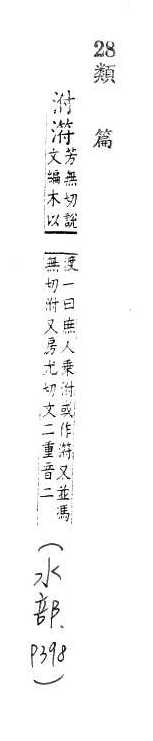 28類篇
泭𣸣芳無切說文編木以
渡一曰庶人乘泭或作𣸣又並馮無切泭又房尤切文二重音二
(水部、P398)